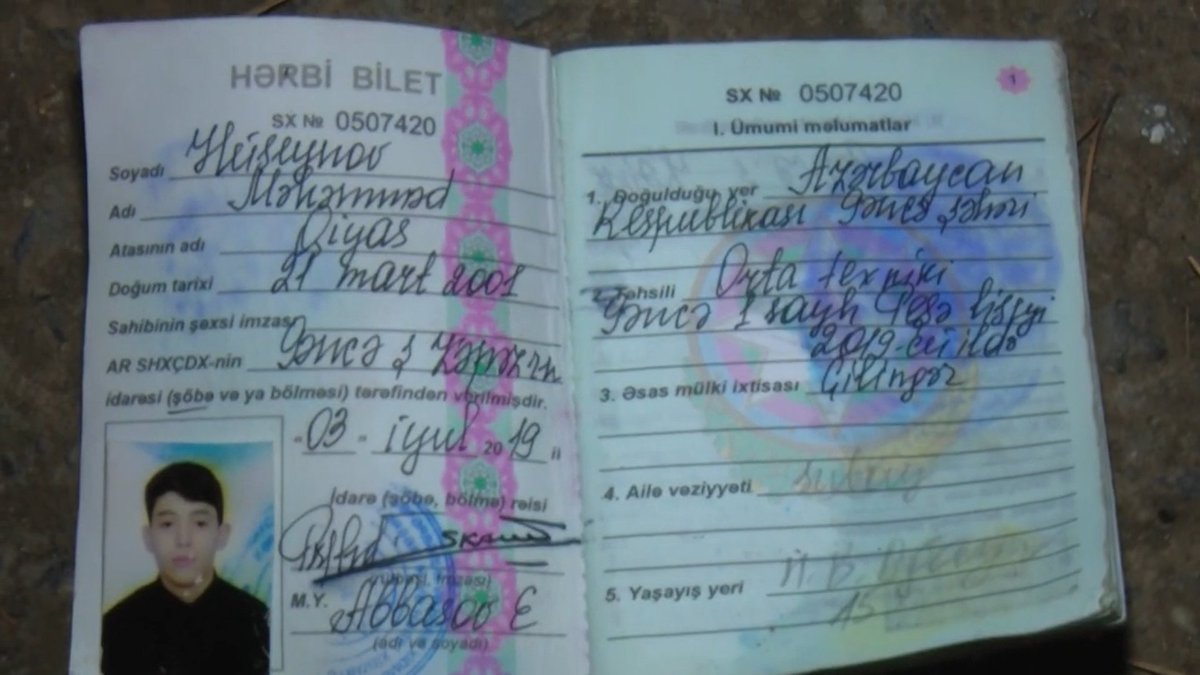 HƏRBİ BİLET
SX № 0507420
Soyadı Hüseynov
Adı Məhəmməd
Atasının adı Qiyas
Doğum tarixi 21 mart 2001
Sahibinin şəxsi imzası
AR SHXÇDX-nin Gəncə ş
idarəsi (şöbə və ya bölməsi) tərəfindən verilmişdir.
"03" iyul 2019 il
İdarə (şöbə, bölmə) rəisi
M.Y. Abbasov E
(adı və soyadı)
SX № 0507420
1
I. Ümumi məlumatlar
1. Doğulduğu yer Azərbaycan
Respublikası Gəncə şəhəri
2. Təhsili Orta texniki
Gəncə 1 saylı Peşə liseyi
2019-cu ildə
3. Əsas mülki ixtisası Çilingər
4. Ailə vəziyyəti subay
5. Yaşayış yeri
15